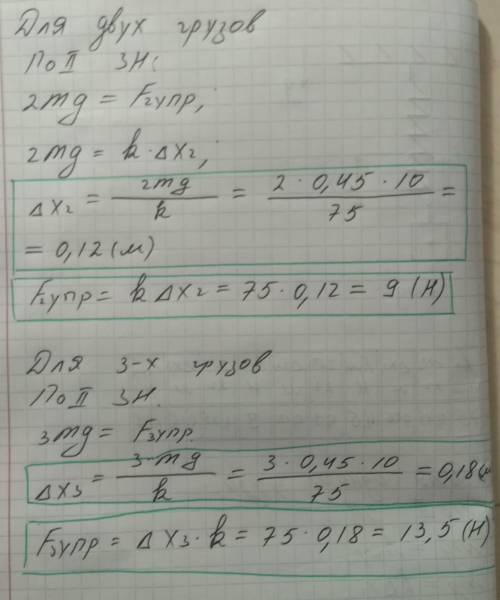 Для двух грузов
По II ЗН:
2mg = F₂упр,
2mg = k · Δx₂,
Δx₂ = 2mg / k = 2 · 0,45 · 10 / 75 =
= 0,12 (м)
F₂упр = k Δx₂ = 75 · 0,12 = 9 (Н)
Для 3-х грузов
По II ЗН.
3mg = F₃упр.
Δx₃ = 3·mg / k = 3 · 0,45 · 10 / 75 = 0,18(м
F₃упр = Δx₃ · k = 75 · 0,18 = 13,5 (Н)